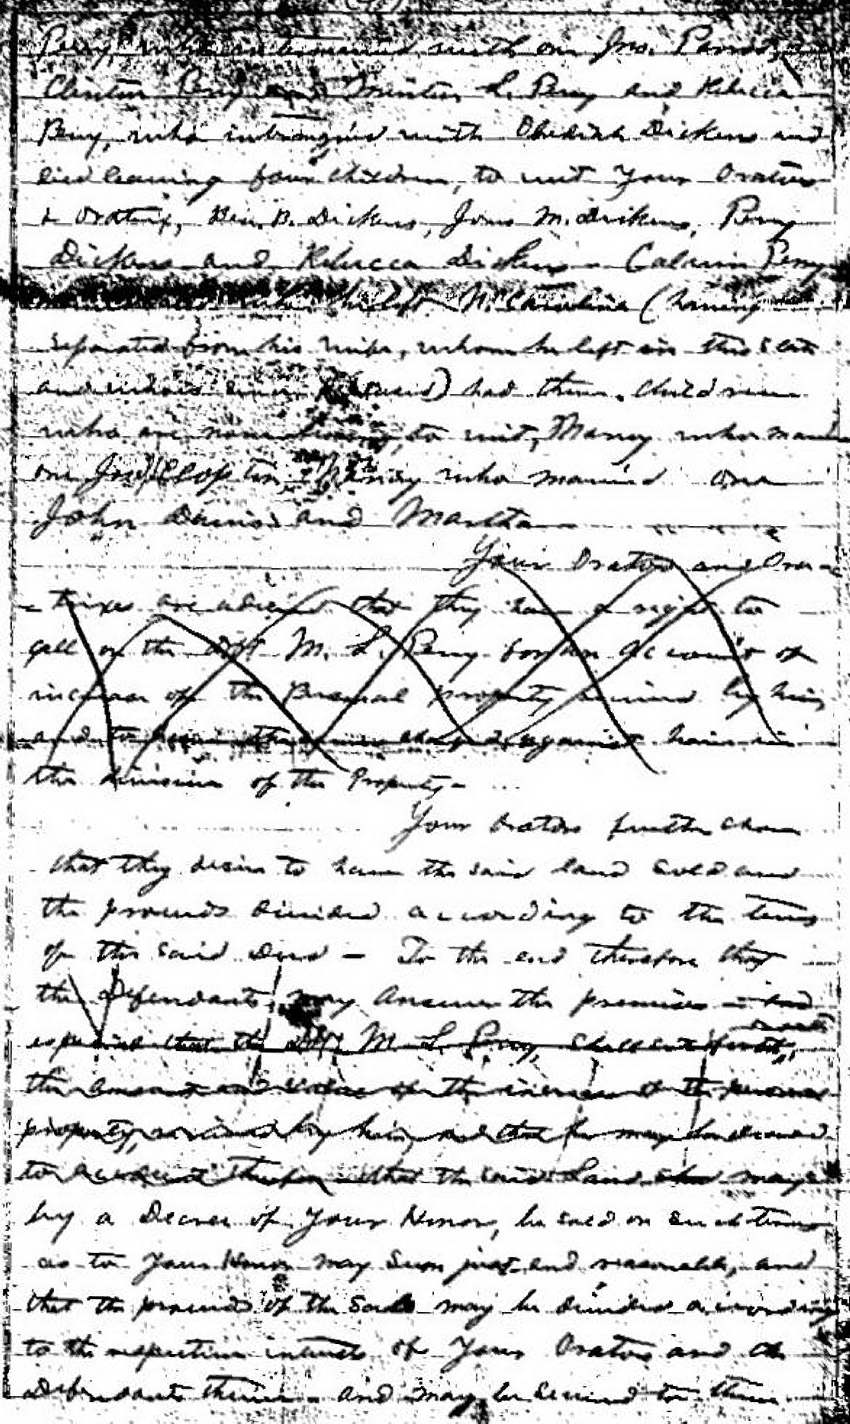 Perry, who intermarried with one Jno. Parrott,
Clinton Perry and Minton L. Perry and Rebecca
Perry, who intermarried with Obediah Dickens and
died leaving four children, to wit Your Orators
& Oratrix, Ben. B. Dickens, Jones M. Dickens, Perry
Dickens and Rebecca Dickens - Calvin Perry
who he left N. Carolina (having
separated from his wife, whom he left in this State
and who is since deceased) had three children
who are now living, to wit, Mancy who married
one Jno Clopton, Nancy who married one
John Dennis and Martha
Your Orators and Ora-
-trixes are advised that they have a right to
call on the deft M. L. Perry for an account of
increase of the Personal property received by him
and to have the same charged against him in
the division of the Property-
Your Orators further show
that they desire to have the said land sold and
the proceeds divided according to the terms
of the said deed - To the end therefore that
the Defendants may answer the premises - and
especially that the deft M. L. Perry, shall set forth,
the amount and value of the increase of the personal
property, received by him, and that he may be decreed
to account therefor - that the said Land may
by a Decree of Your Honor, be sold on such terms
as to Your Honor may seem just and reasonable, and
that the proceeds of the Sale may be divided according
to the respective interests of Your Orators and the
Defendants therein - and may be secured to them